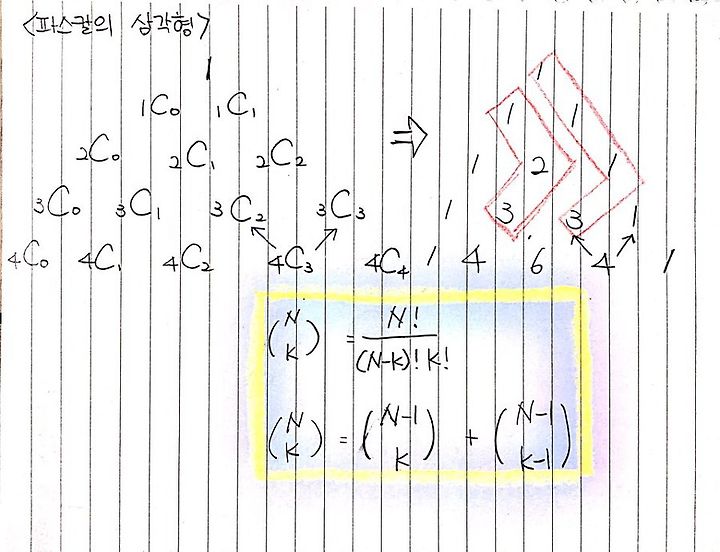 <파스컬의 삼각형>
1
₁C₀ ₁C₁
₂C₀ ₂C₁ ₂C₂
₃C₀ ₃C₁ ₃C₂ ₃C₃
₄C₀ ₄C₁ ₄C₂ ₄C₃ ₄C₄
⇒
1
1 1
1 2 1
1 3 3 1
1 4 6 4 1
(N K) = N! / (N-K)! K!
(N K) = (N-1 K) + (N-1 K-1)